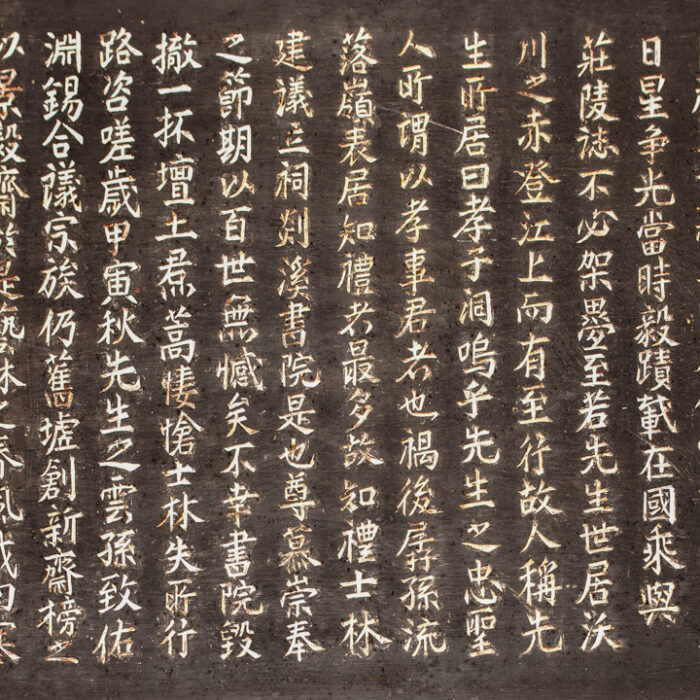 日星争光當時毅蹟載在國乘與
莊陵誌不必架疊至若先生世居沃
川之赤登江上而有至行故人稱先
生所居曰孝子洞嗚乎先生之忠聖
人所謂以孝事君者也禍後孱孫流
落嶺表居知禮者最多故知禮士林
建議立祠剡溪書院是也尊慕崇奉
之節期以百世無憾矣不幸書院毀
撤一抔壇土焄蒿悽愴士林失所行
路咨嗟歲甲寅秋先生之雲孫致佑
淵錫合議宗族仍舊墟創新齋榜之
以景毅齋於是藝林之春風